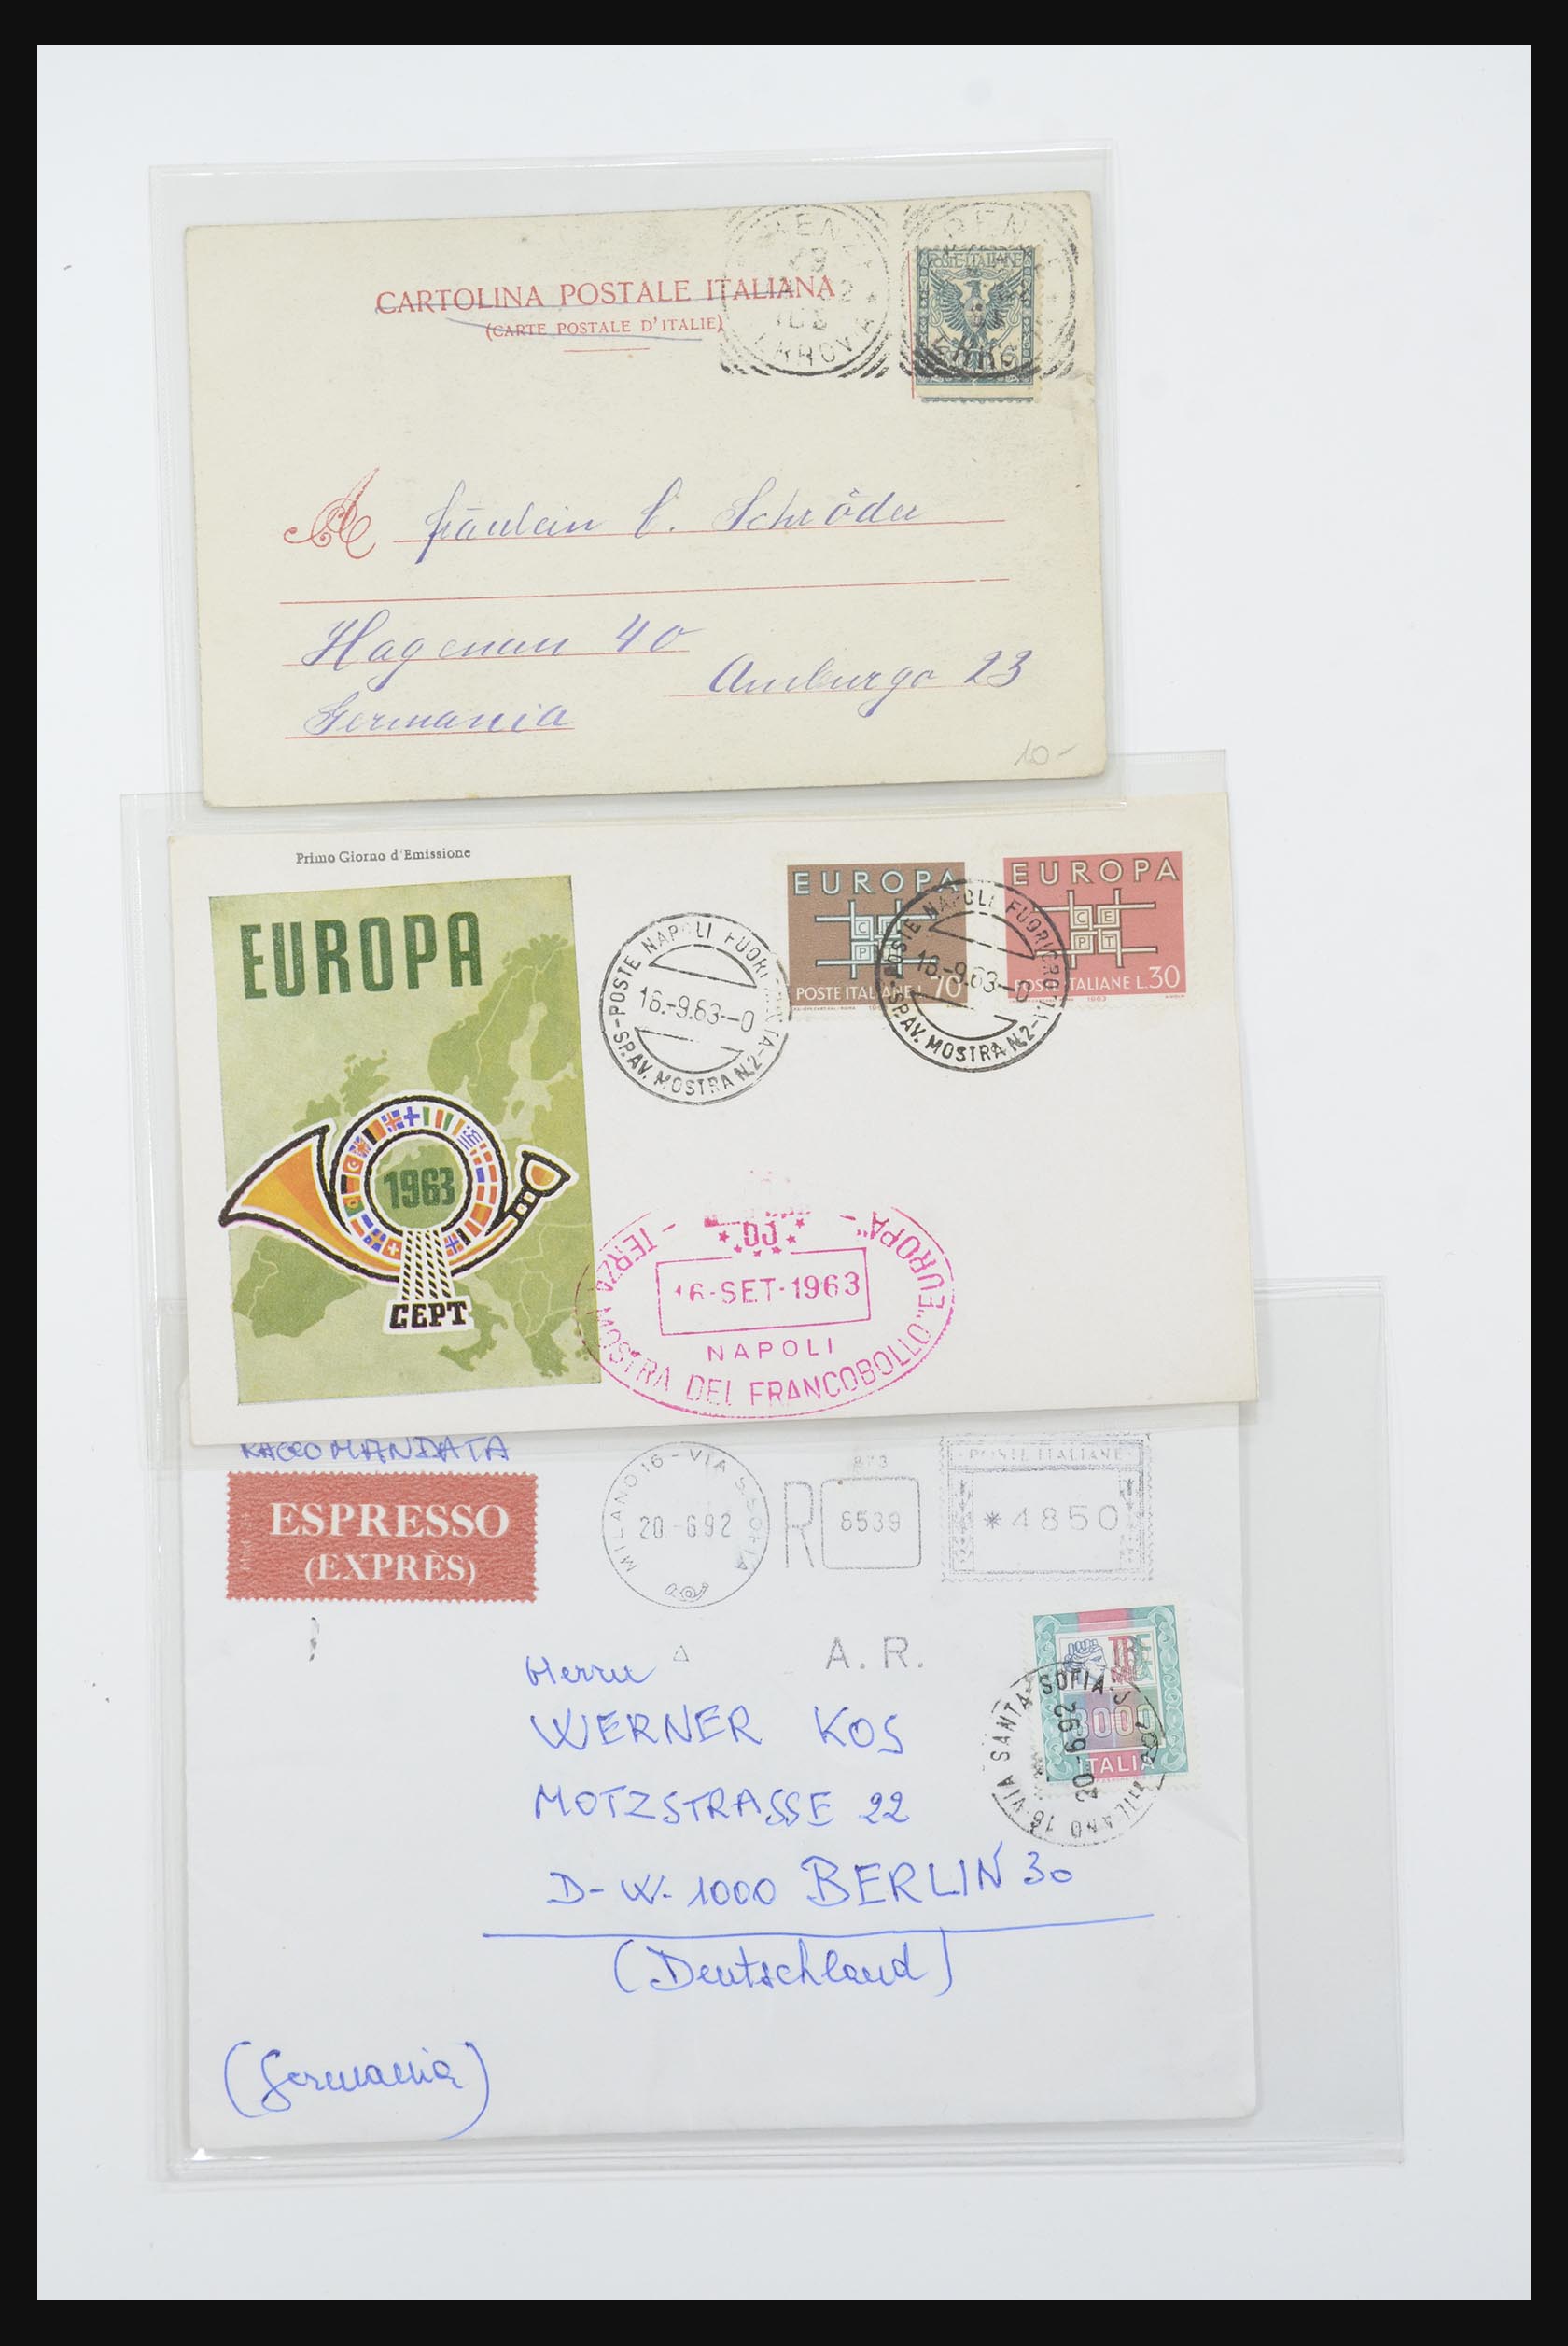 CARTOLINA POSTALE ITALIANA
(CARTE POSTALE D'ITALIE)
POSTE ITALIANE
A Fräulein C. Schröder
Hagenau 40
Amburgo 23
Germania
10-
Primo Giorno d'Emissione
EUROPA
1963
CEPT
POSTE NAPOLI FUORI
16.-9.63--0
SP.AV. MOSTRA N.2
EUROPA
C E
P T
POSTE ITALIANE L. 70
POSTE NAPOLI FUORI GROTTA
16.-9.63--0
SP.AV. MOSTRA N.2
EUROPA
C E
P T
POSTE ITALIANE L.30
1963
TERZA MOSTRA DEL FRANCOBOLLO "EUROPA"
16-SET-1963
NAPOLI
RACCOMANDATA
ESPRESSO
(EXPRÈS)
MILANO 16 - VIA S. SOFIA
20-6 92
R
873
6539
POSTE ITALIANE
*4850
A.R.
3000
ITALIA
MILANO 16-VIA SANTA SOFIA
20-6-92
Herrn
WERNER KOS
MOTZSTRASSE 22
D-W-1000 BERLIN 30
(Deutschland)
(Germania)